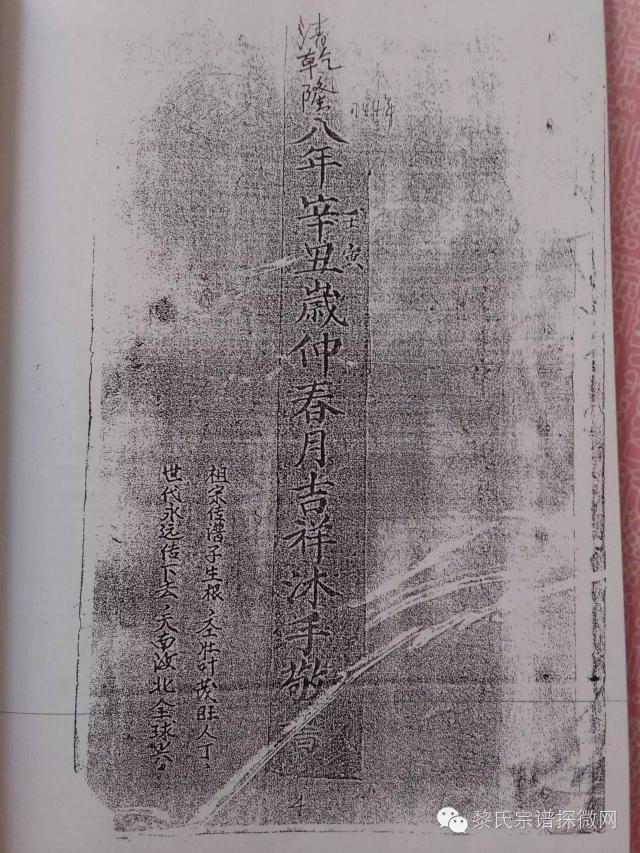 清乾隆八年辛丑歲仲春月吉祥沐手敬
壬寅
祖宗传谱子生根，叶茂旺人丁，
世代永远传下去，天南海北全球
4
黎氏宗谱探微网